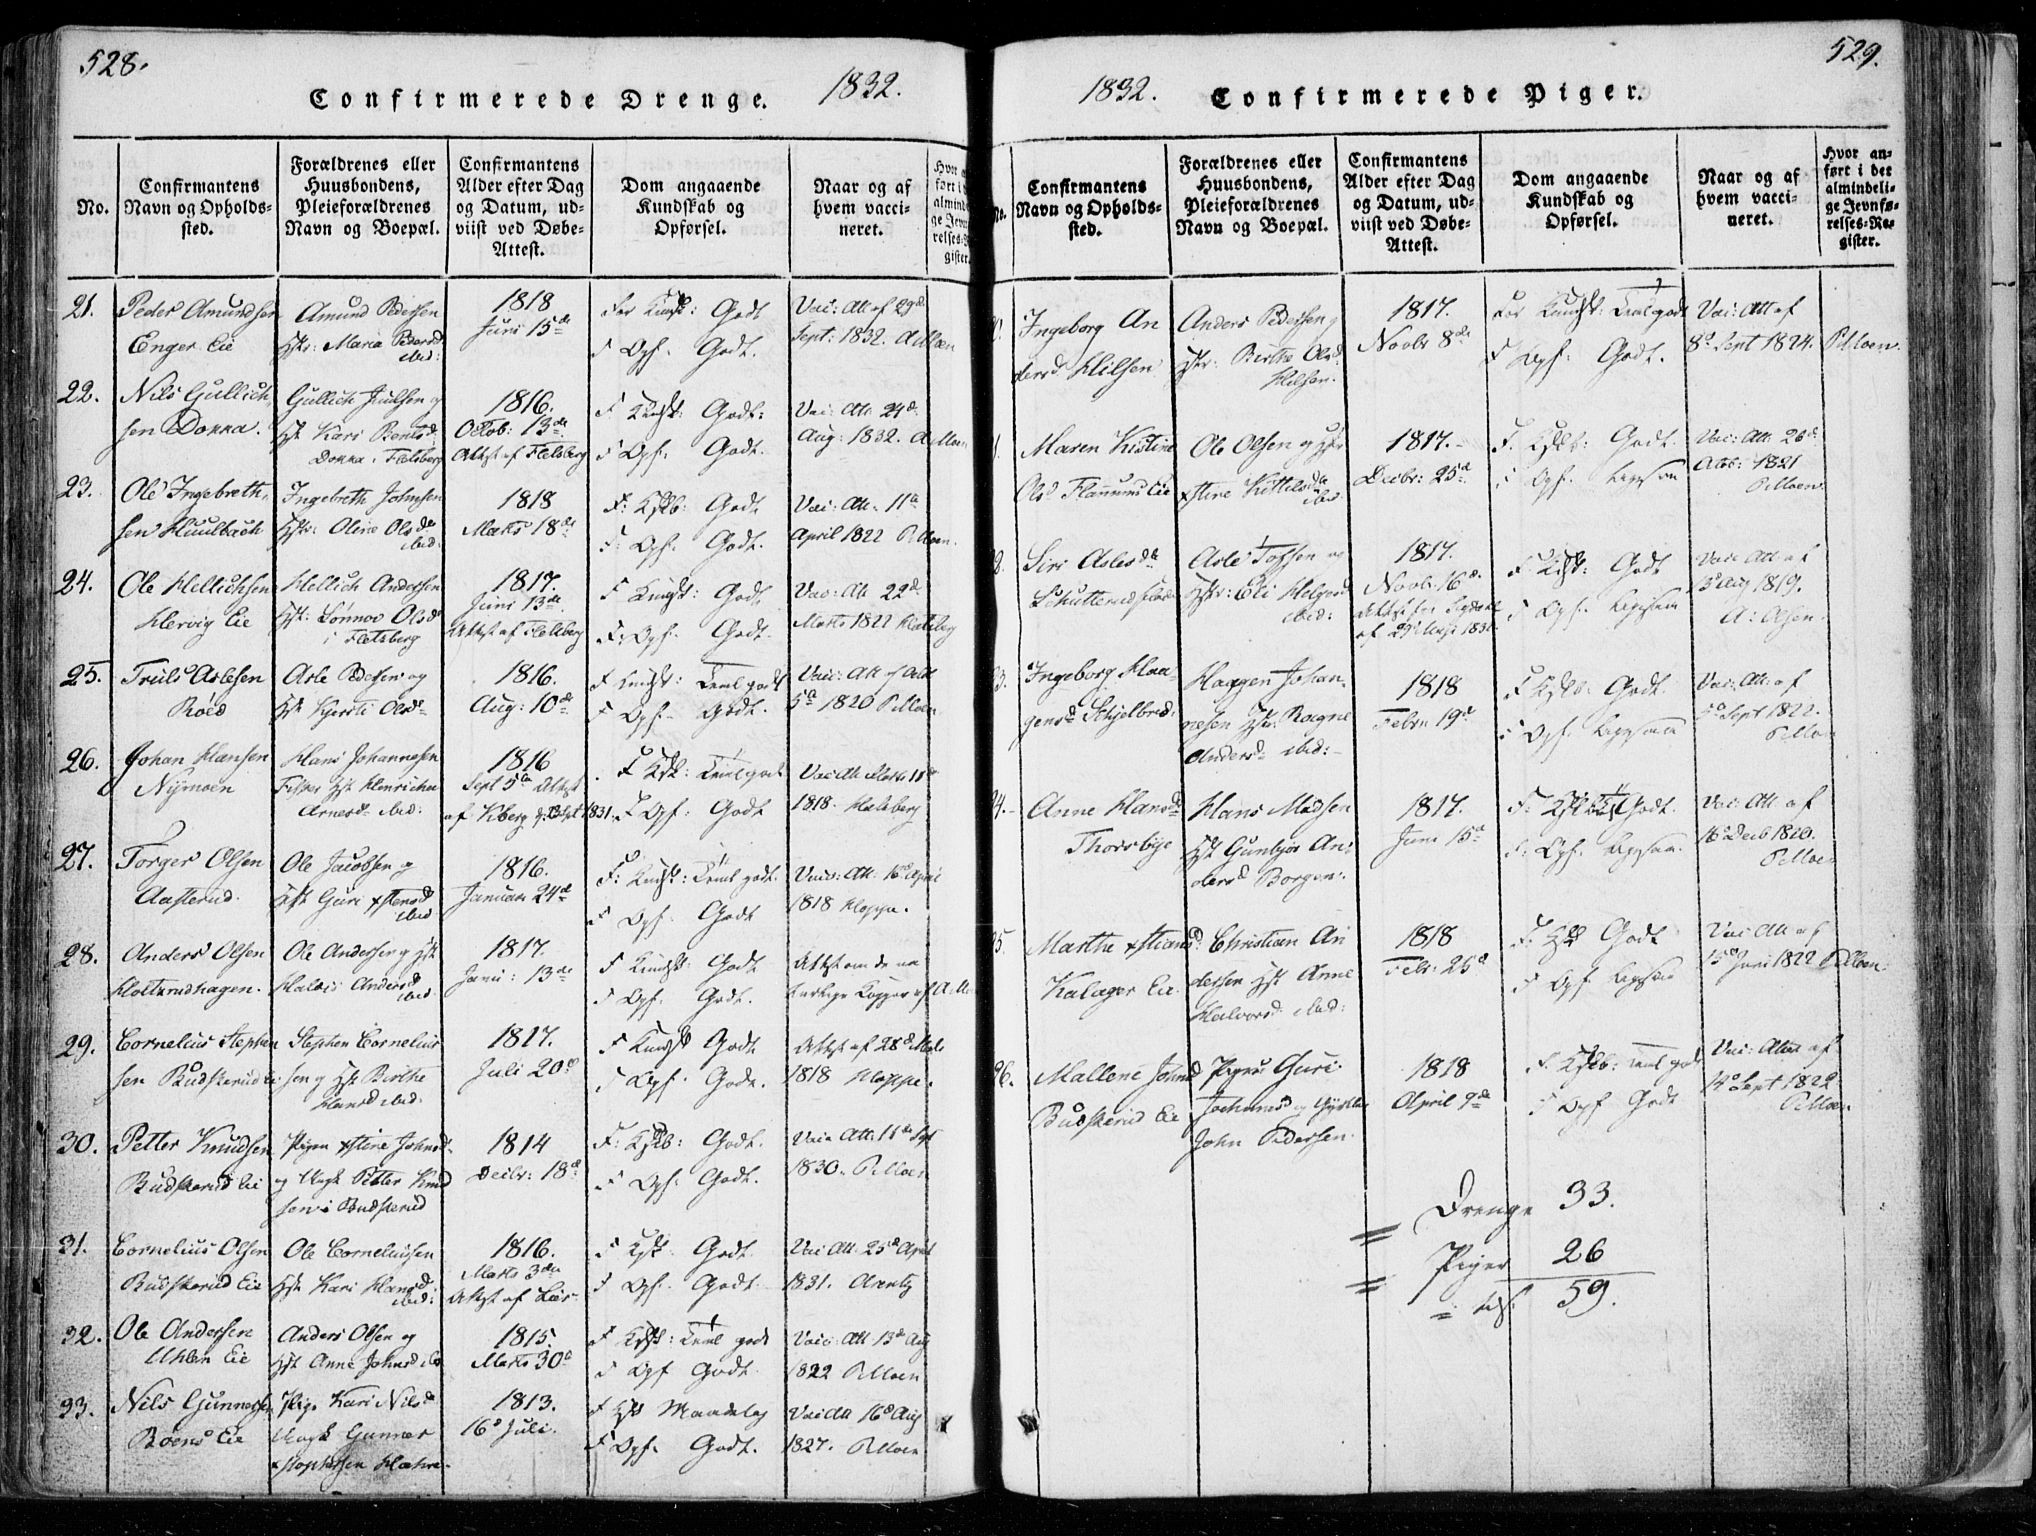 528.
Confirmerede Drenge. 1832.
No.
Confirmantens
Navn og Opholds-
sted.
Forældrenes eller
Huusbondens,
Pleieforældrenes
Navn og Boepæl.
Confirmantens
Alder efter Dag
og Datum, ud-
viist ved Døbe-
Attest.
Dom angaaende
Kundskab og
Opførsel.
Naar og af
hvem vacci-
neret.
21.
Peder Amundsen
Enger Eie
Amund Pedersen
Maria Pedersd
ibid:
1818
Juni 15de
For Kundsk: Godt
F Opf. Godt.
Vac: Att af 29d
Sept: 1832. A Moen
22.
Nils Gullich
sen Donna.
Gullich Juulsen og
Hst Kari Bentsd
Donna i Flesberg
1816.
Octob: 13de
Attest af Flesberg
F Kundsk: Godt:
F Opf. Godt.
Vac: Att. 24d
Aug: 1832. A Moen
23.
Ole Ingebreth,
sen Huulbach
Ingebreth Johnsen
Hstr: Oline Olsd
ibid:
1818
Marts 18de
F: Kskb: Godt
F: Opf. Godt.
Vac: Att. 11a
April 1822 P Moen.
24.
Ole Hellichsen
Hervig Eie
Hellich Andersen
Hst: Lønnov Olsd
i Flesberg
1817.
Juni 13de
Attest af Flesberg
F Kundsk: Godt
F: Opf. Godt.
Vac: Att 22d
Marts 1822
25.
Truls Aslesen
Roed
Asle Pedersen og
Hst Kjersti Olsd
1816.
Aug: 10de
F Kundsk: Teml godt
F Opf. Godt.
Vac: Att af
5a 1820 P Moen
26.
Johan Hansen
Nymoen
Hans Johannesen
Fisker Hst Henricha
Arnesd ibid:
1816
Sept 5te Attest
1831.
F Kskb: Teml godt
F Opf: Godt
Vac Att Marts 11te
1818.
27.
Torger Olsen
Aasterud.
Ole Jacobsen og
Hst Guri xstensd
ibid
1816.
Januar 24de
F: Kundsk: Teml godt.
F Opf. Godt
Vacc: Att. 16d April
1818 Kloppe.
28.
Anders Olsen
Holtsrudhagen.
Ole Andersen og Hst
Andersd
ibid
1817.
Janu: 13de
F Kundsk: Godt
F Opf. Godt.
Attest om de na
turlige Kopper af A. M
29.
Cornelius Stephen
sen Budskerud Ei
Stephen Cornelius
sen og Hst Birthe
Hansd ibid.
1817.
Juli 20d
F Kundsk Godt
F Opf. Godt.
Attest af 28d
1818 Kloppe.
30.
Petter Knudsen
Budskerud Eie
Pigen xstine Johnsd
og Ungk Petter Knud
sen i Budskerud
1814
Decbr: 18d
F: Kskb: Godt.
F Opf: Godt.
Vac: Att: 11te Sept
1830. P Moen
31.
Cornelius Olsen
Budskerud Eie
Ole Corneliussen
Hst Kari Hansd
ibid:
1816.
Marts 3die
Attest af Lier
F Kskb: Godt
F Opf. Godt.
Vac Att. 25d April
1831. Arentz
32.
Ole Andersen
Uhlen Eie
Anders Olsen og
Hst Anne Johnsd ibid
1815.
Marts 30a
F Kskb: Teml godt
F Opf Godt
Vac: Att. 13d Aug
1822 P Moen
33.
Nils Gunnersen
Boens Eie
Pige Kari Nilsd
Ungk Gunner
1813.
16d Juli.
F Kskb Maadelig
F Opf. Godt.
Vac Att 16d Aug
1827. P Moen
529.
1832. Confirmerede Piger.
No.
Confirmantens
Navn og Opholds-
sted.
Forældrenes eller
Huusbondens,
Pleieforældrenes
Navn og Boepæl.
Confirmantens
Alder efter Dag
og Datum, ud-
viist ved Døbe-
Attest.
Dom angaaende
Kundskab og
Opførsel.
Naar og af
hvem vacci-
neret.
Hvor an-
ført i det
almindeli-
ge Jevnfø-
relses-Re-
gister.
Ingeborg An
dersd Hilsen
Anders Pedersen og
Hstr: Birthe Olsd
Hilsen.
1817.
Novbr 8de
For Kundsk: Teml godt
F Opf: Godt.
Vac: Att af
8d Sept 1824. P Moen.
Maren Kistine
Olsd Flannum Eie
Ole Olsen og Hstr
xstine Kittilsd
ibid
1817.
Decbr: 25d
F. Kskb: Godt.
F Opf. ligesaa
Vac: Att: 26d
1821
P Moen
Siri Aslesd
Asle
Hstr: Eli Helgesd
ibid:
1817.
Novb. 16d
F Kskb: Godt
F Opf. ligesaa
Vac: Att af
Aug 1819.
A: Olsen.
Ingeborg Haa
gensd Schjelbred.
Haagen Johan,
nesen Hstr: Ragne
Andersd ibid:
1818
Febr: 19d
F Kskb: Godt.
F Opf. ligesaa
Vac: Att: af
Sept 1822.
P Moen
24.
Anne Hansd
Thorsbye
Hans Madsen
Hst Gunbjør An:
dersd Borgen:
1817.
Juni 15d
F: Kskb Godt.
F: Opf. ligesaa.
Vac: Att af
16d Decb 1820.
P Moen
25.
Marthe xstiansd
Kalager Eie
Christian An
dersen Hst Anne
Halvorsd ibid:
1818
Febr: 26d
F: Kskb Godt
F Opf ligesaa
Vac Att af
15d Juni 1822 P Moen
26.
Mallene Johnsd
Budskerud Eie
Pigen Guri
John Pedersen.
1818
April 9de
F. Kskb: Teml godt
F Opf Godt
Vac: Attest af
14d Sept 1822
P Moen
Drenge 33.
Piger 26
59.